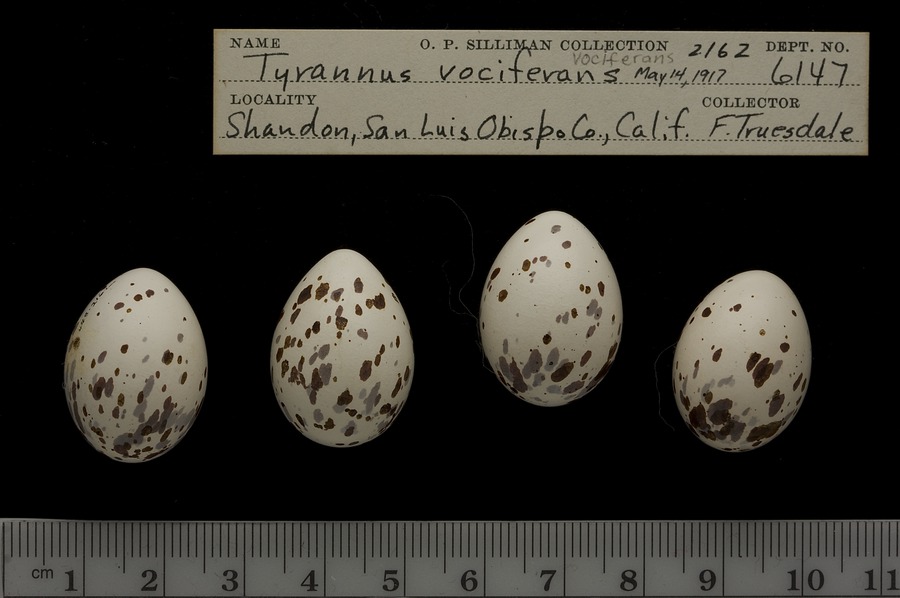 NAME O. P. SILLIMAN COLLECTION 2162 DEPT. NO.
vociferans
Tyrannus vociferans May 14, 1917 6147
LOCALITY COLLECTOR
Shandon, San Luis Obispo Co., Calif. F. Truesdale
cm 1 2 3 4 5 6 7 8 9 10 11